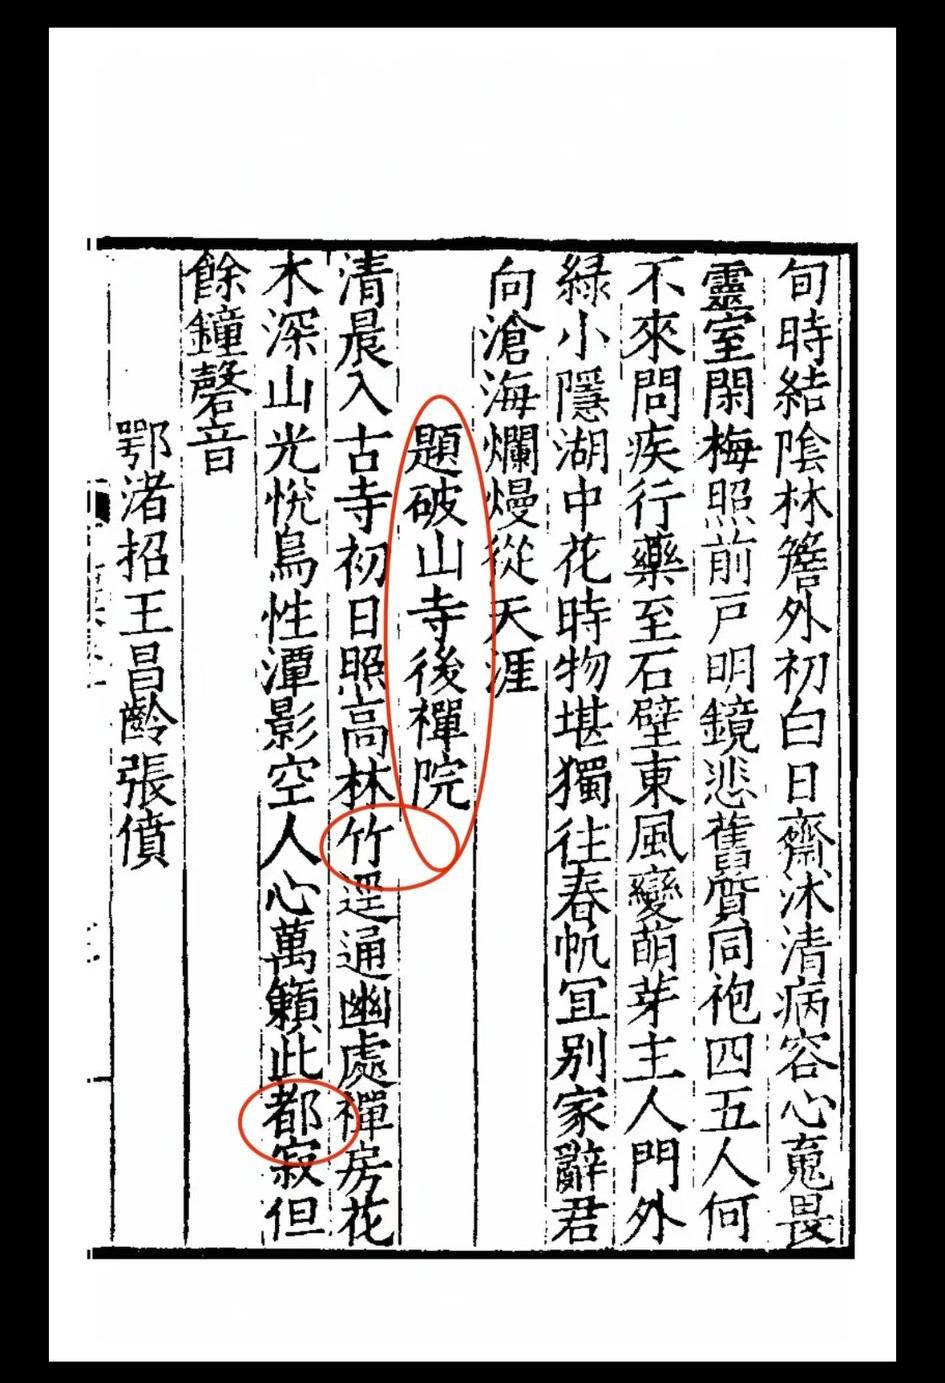 旬時結陰林簷外初白日齋沐清病容心䰟畏
靈室閑梅照前戸明鏡悲舊質同袍四五人何
不來問疾行藥至石壁東風變萌芽主人門外
緑小隱湖中花時物堪獨往春帆冝别家辭君
向滄海爛熳從天涯
題破山寺後禪院
清晨入古寺初日照高林竹逕通幽處禪房花
木深山光悅鳥性潭影空人心萬籟此都寂但
餘鐘磬音
鄂渚招王昌齡張僨